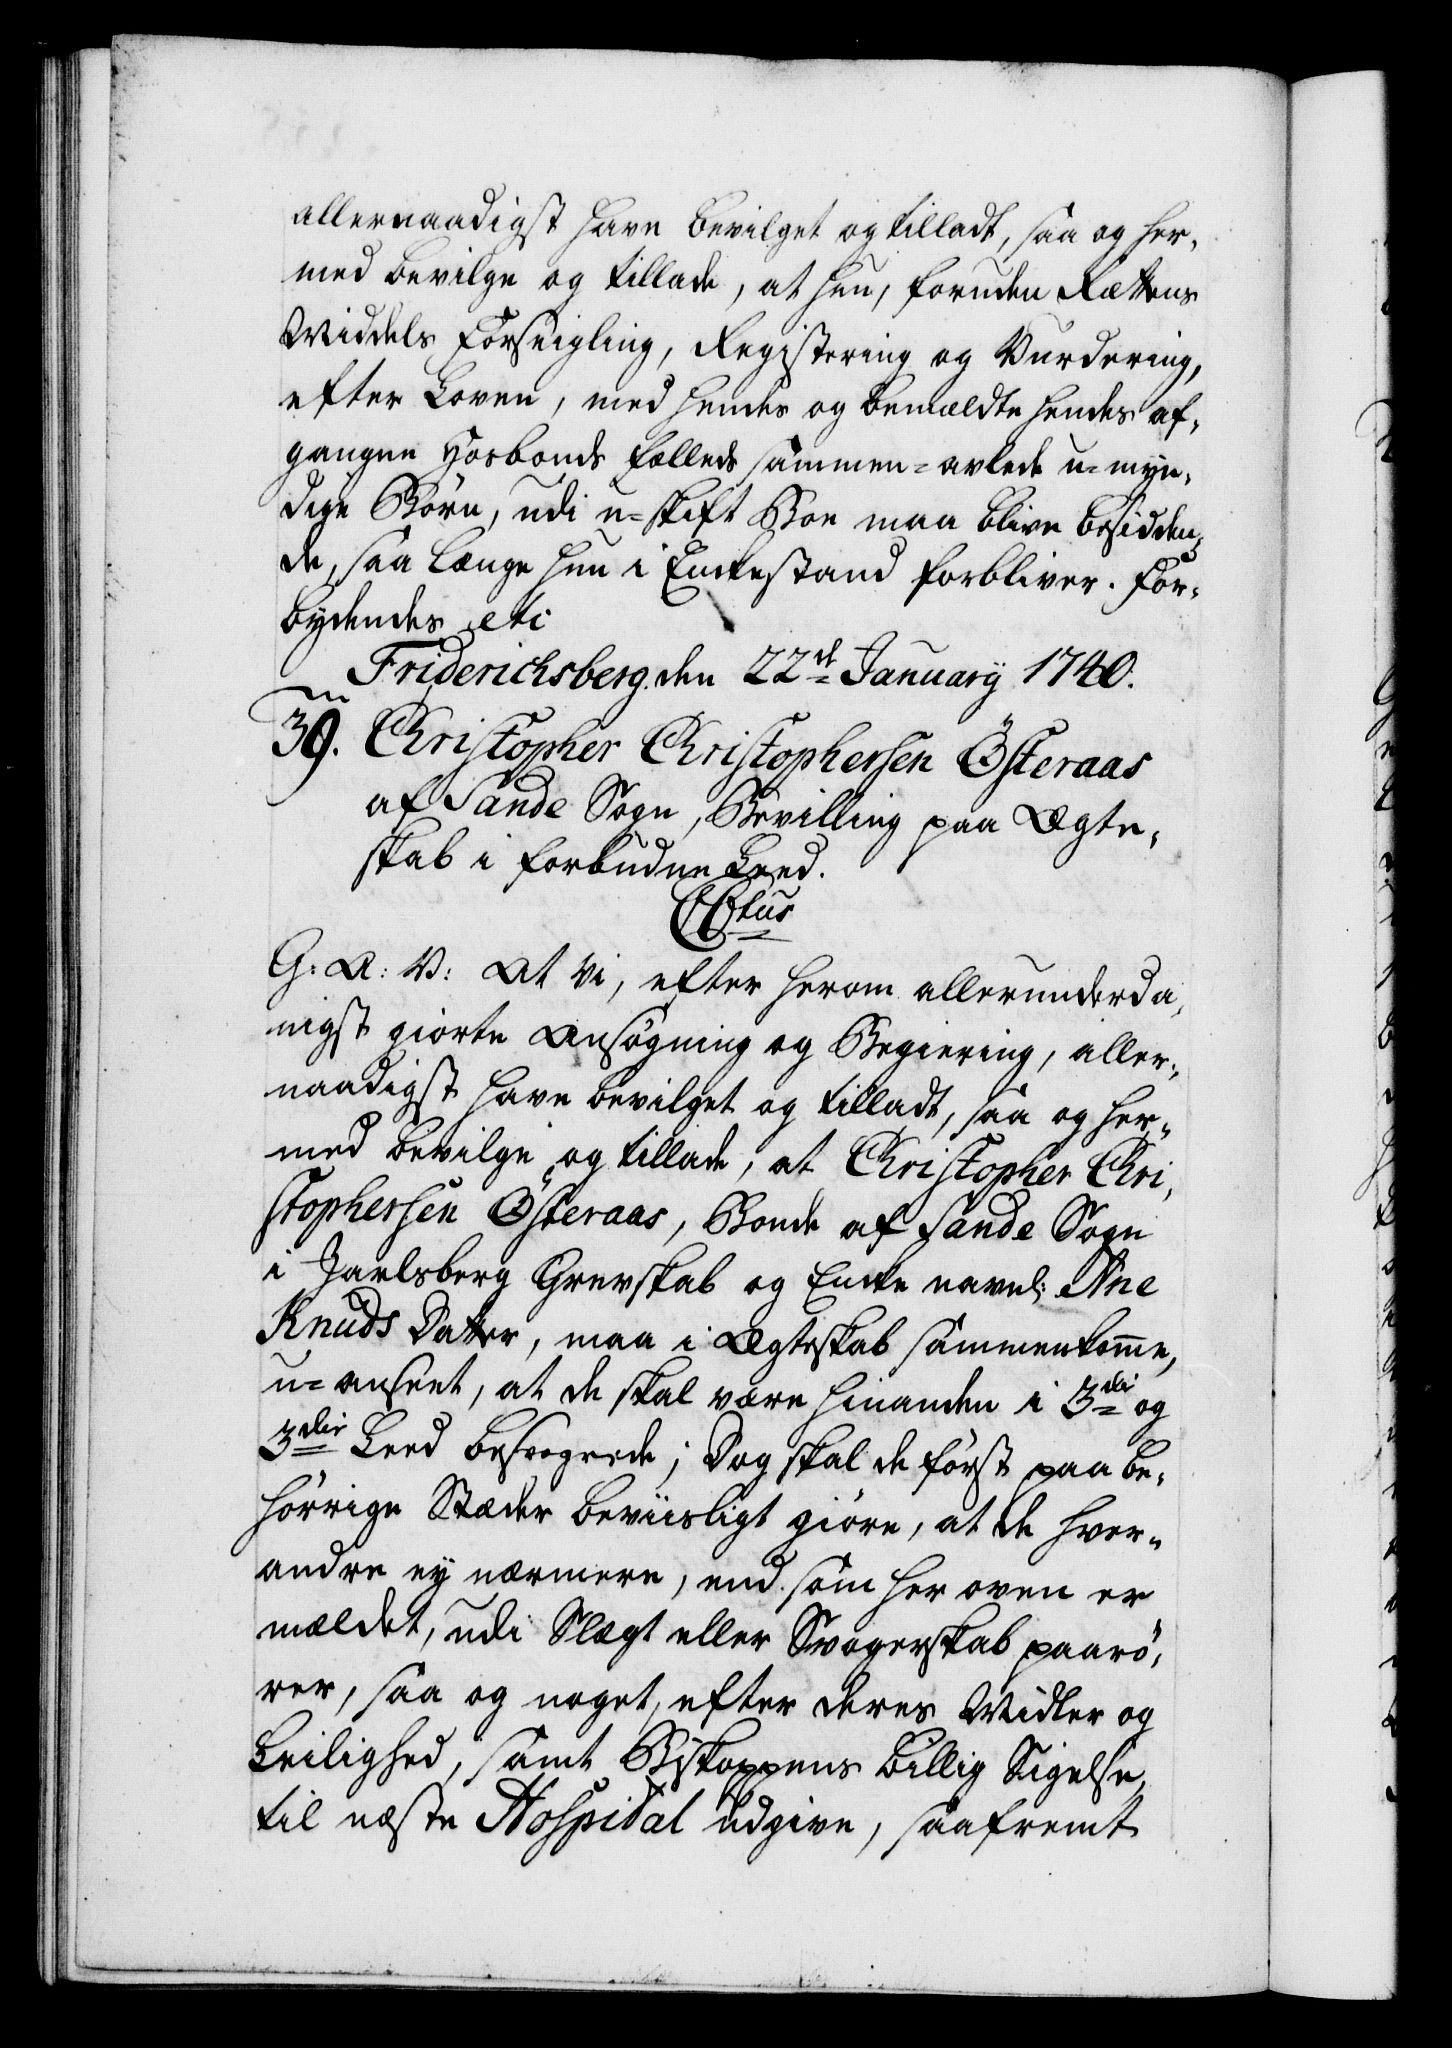 allernaadigst have bevilget og tilladt, saa og her,
med bevilge og tillade, at hun, foruden Rættens
Middels Forseigling, Registering og Vurdering,
efter Loven, med hendes og bemældte hendes af,
gangne Hosbonds fælleds sammen=avlede u=myn,
dige Børn, udi u=skift Boe maa blive besidden,
de, saa længe hun i Enckestand forbliver. For,
bydendes etc
Friderichsberg den 22de January 1740.
39. Christopher Christophersen Österaas
af Sande Sogn, Bevilling paa Ægte,
skab i forbudne Leed.
C6tus
G: A: V: At Vi, efter herom allerunderda,
nigst giorte Ansøgning og Begiering, aller,
naadigst have bevilget og tilladt, saa og her,
med bevilge og tillade, at Christopher Chri,
stophersen Österaas, Bonde af Sande Sogn
i Jarlsberg Grevskab og Encke navnl: Ane
Knuds Datter, maa i Ægteskab sammenkomme,
u=anseet, at de skal være hinanden i 3die og
3die Leed besvogrede; Dog skal de först paa be,
hörrige Stæder beviisligt giøre, at de hver,
andre ey nærmere, end som her oven er
mældet, udi Slægt eller Svogerskab paarö,
rer, saa og noget, efter deres Midler og
Leilighed, samt Biskoppens billig Sigelse,
til næste Hospital udgive, saafremt